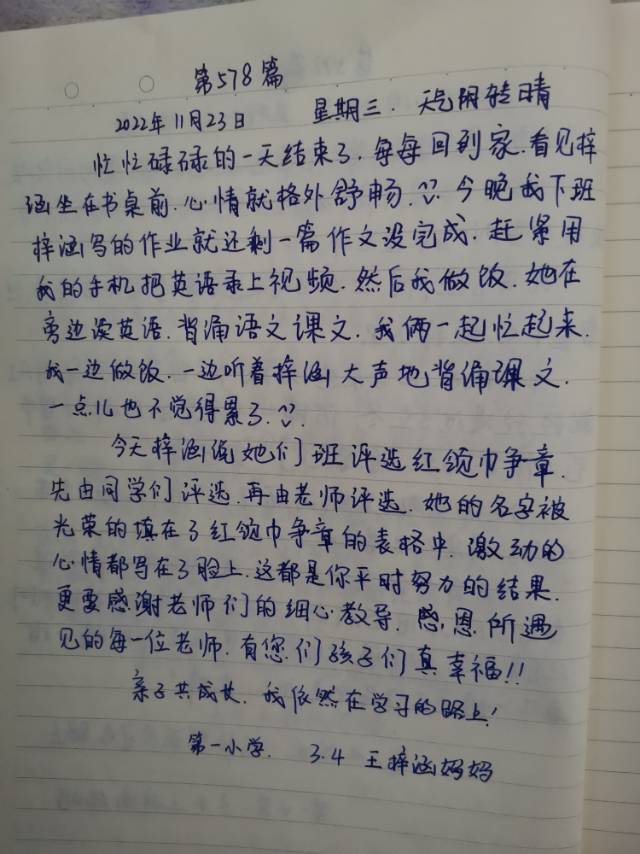 第578篇
2022年11月23日 星期三. 天气阴转晴
忙忙碌碌的一天结束了, 每每回到家, 看见梓
涵坐在书桌前, 心情就格外舒畅. 今晚我下班
梓涵写的作业就还剩一篇作文没完成. 赶紧用
我的手机把英语录上视频. 然后我做饭, 她在
旁边读英语, 背诵语文课文, 我俩一起忙起来.
我一边做饭, 一边听着梓涵大声地背诵课文,
一点儿也不觉得累了.
今天梓涵说她们班评选红领巾争章,
先由同学们评选, 再由老师评选. 她的名字被
光荣的填在了红领巾争章的表格中, 激动的
心情都写在了脸上, 这都是你平时努力的结果,
更要感谢老师们的细心教导. 感恩所遇
见的每一位老师, 有您们孩子们真幸福!!
亲子共成长, 我依然在学习的路上!
第一小学. 3.4 王梓涵妈妈